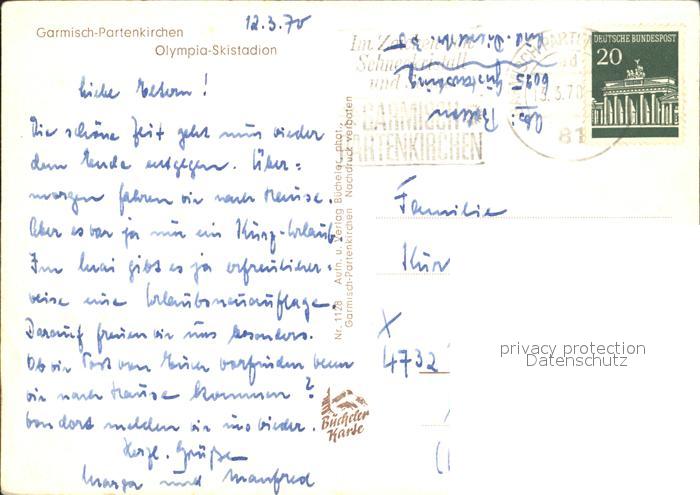 Garmisch-Partenkirchen
Olympia-Skistadion
12.3.70
Liebe Eltern!
Die schöne Zeit geht nun wieder
dem Ende entgegen. Über=
morgen fahren wir nach Hause.
Aber es war ja nur ein Kurz-Urlaub.
Im Mai gibt es ja erfreulicher-
weise eine Urlaubsneuauflage.
Darauf freuen wir uns besonders.
Ob wir Post von Euch vorfinden wenn
wir nach Hause kommen?
Von dort melden wir uns wieder.
Herzl. Grüße
Marga und Manfred
Nr. 1128 Aufn. u. Verlag Bücheler, phot.
Garmisch-Partenkirchen Nachdruck verboten
Bücheler
Karte
Im Zeichen
Schneekristall
und
GARMISCH-
PARTENKIRCHEN
Abs:
6095
13.3.70
81
DEUTSCHE BUNDESPOST
20
Familie
Kur
X
4732
privacy protection
Datenschutz